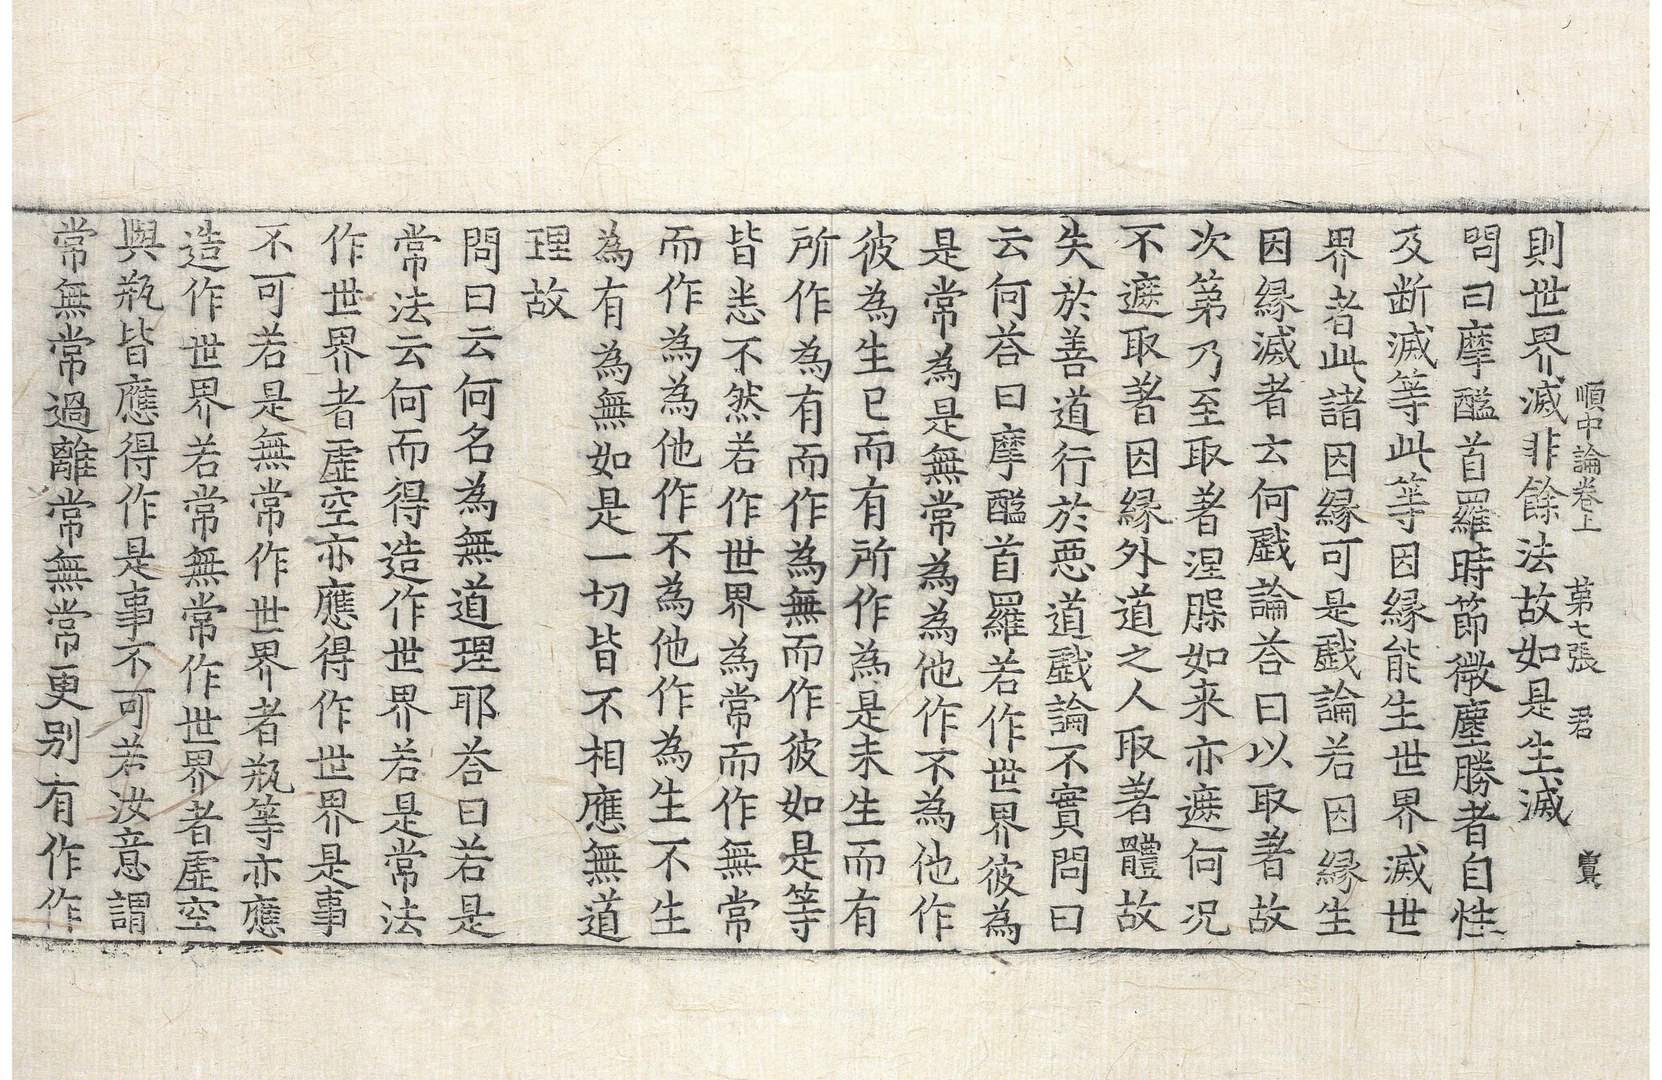 順中論卷上 第七張 君 寘
則世界滅非餘法故如是生滅
問曰摩醯首羅時節微塵勝者自性
及断滅等此等因縁能生世界滅世
界者此諸因縁可是戱論若因縁生
因縁滅者云何戱論荅曰以取著故
次第乃至取著涅槃如来亦遮何况
不遮取著因縁外道之人取著體故
失於善道行於惡道戱論不實問曰
云何荅曰摩醯首羅若作世界彼為
是常為是無常為為他作不為他作
彼為生已而有所作為是未生而有
所作為有而作為無而作彼如是等
皆悉不然若作世界為常而作無常
而作為為他作不為他作為生不生
為有為無如是一切皆不相應無道
理故
問曰云何名為無道理耶荅曰若是
常法云何而得造作世界若是常法
作世界者虛空亦應得作世界是事
不可若是無常作世界者瓶等亦應
造作世界若常無常作世界者虛空
與瓶皆應得作是事不可若汝意謂
常無常過離常無常更别有作作